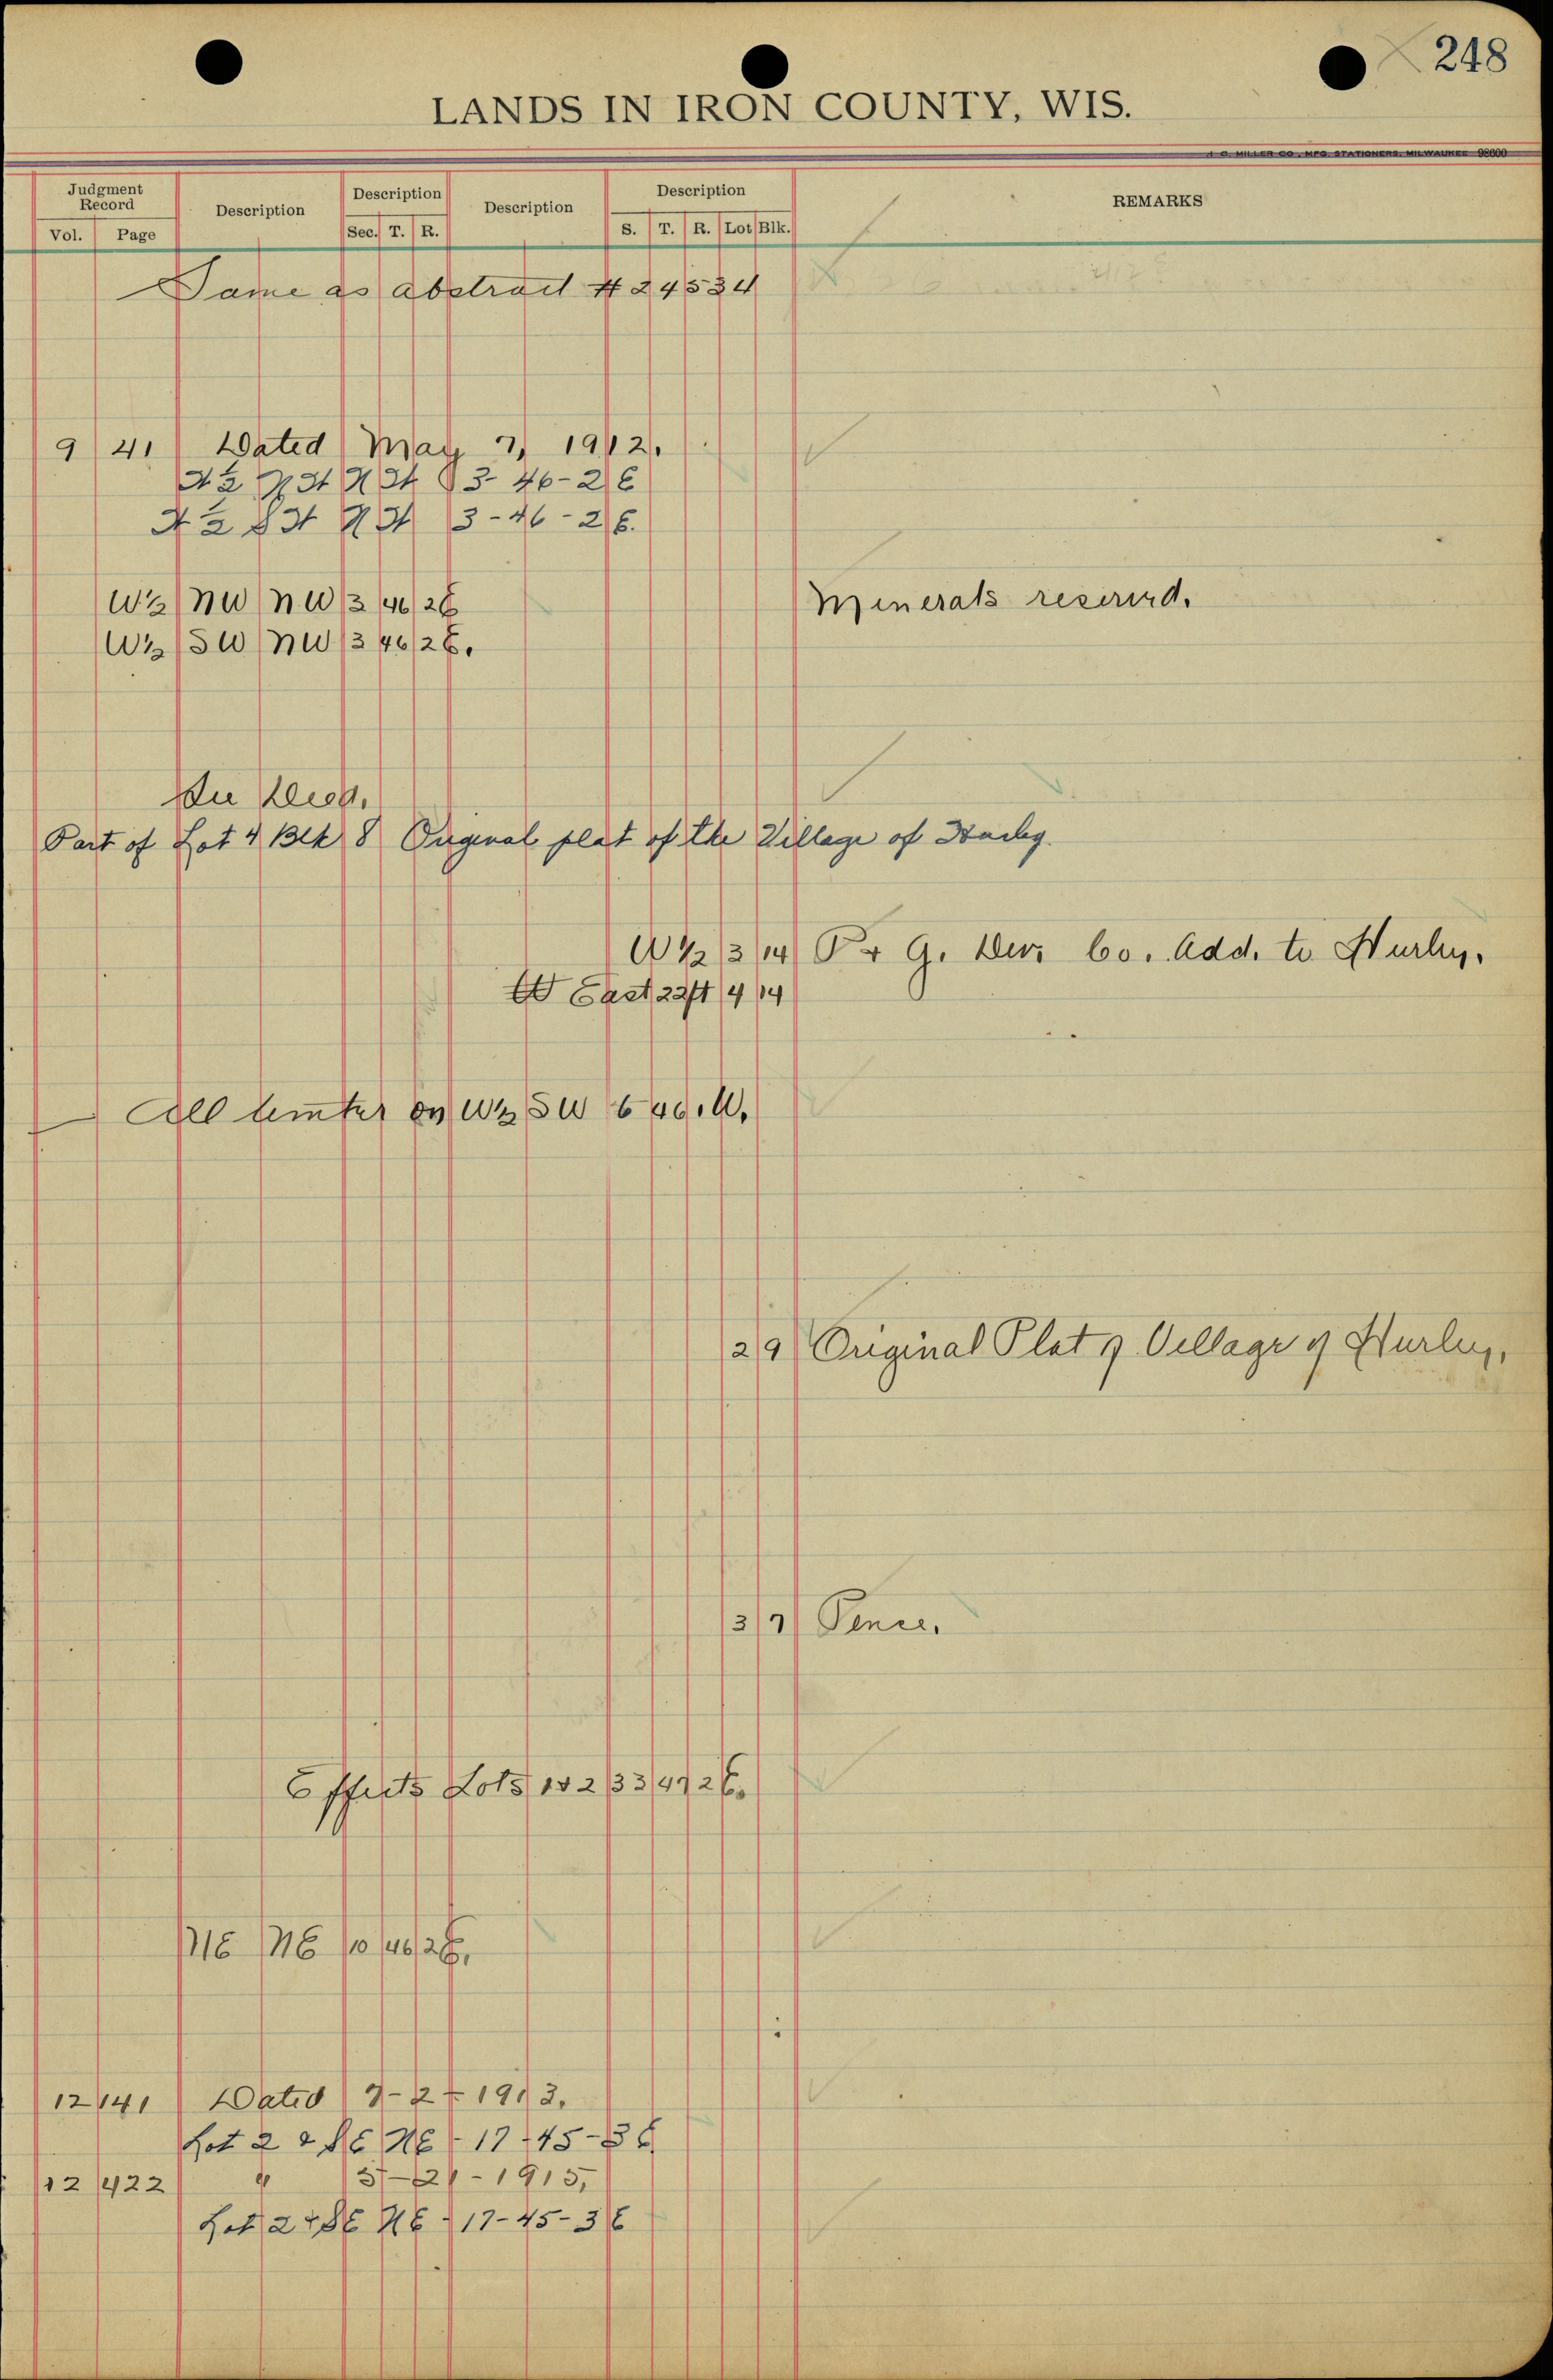 248
LANDS IN IRON COUNTY, WIS.
H. C. MILLER CO., MFG. STATIONERS, MILWAUKEE 98600
Judgment Record Description Description Description Description REMARKS
Vol. Page Sec. T. R. S. T. R. Lot Blk.
Same as abstract # 24534
9 41 Dated May 7, 1912.
3-46-2E
3-46-2E.
W½ NW NW 3 46 2E Minerals reserved.
W½ SW NW 3 46 2E.
See Deed.
Part of Lot 4 Blk 8 Original plat of the Village of Hurley.
W½ 3 14 P & G. Dev. Co. Add. to Hurley.
East 22ft 4 14
All timber on W½ SW 6 46.
2 9 Original Plat of Village of Hurley.
3 7 Pence.
Effects Lots 1&2 33 47 2E.
NE NE 10 46 2E.
12 141 Dated 7-2-1913.
Lot 2 & SE NE - 17-45-3E
12 422 " 5-21-1915,
Lot 2 & SE NE - 17-45-3E